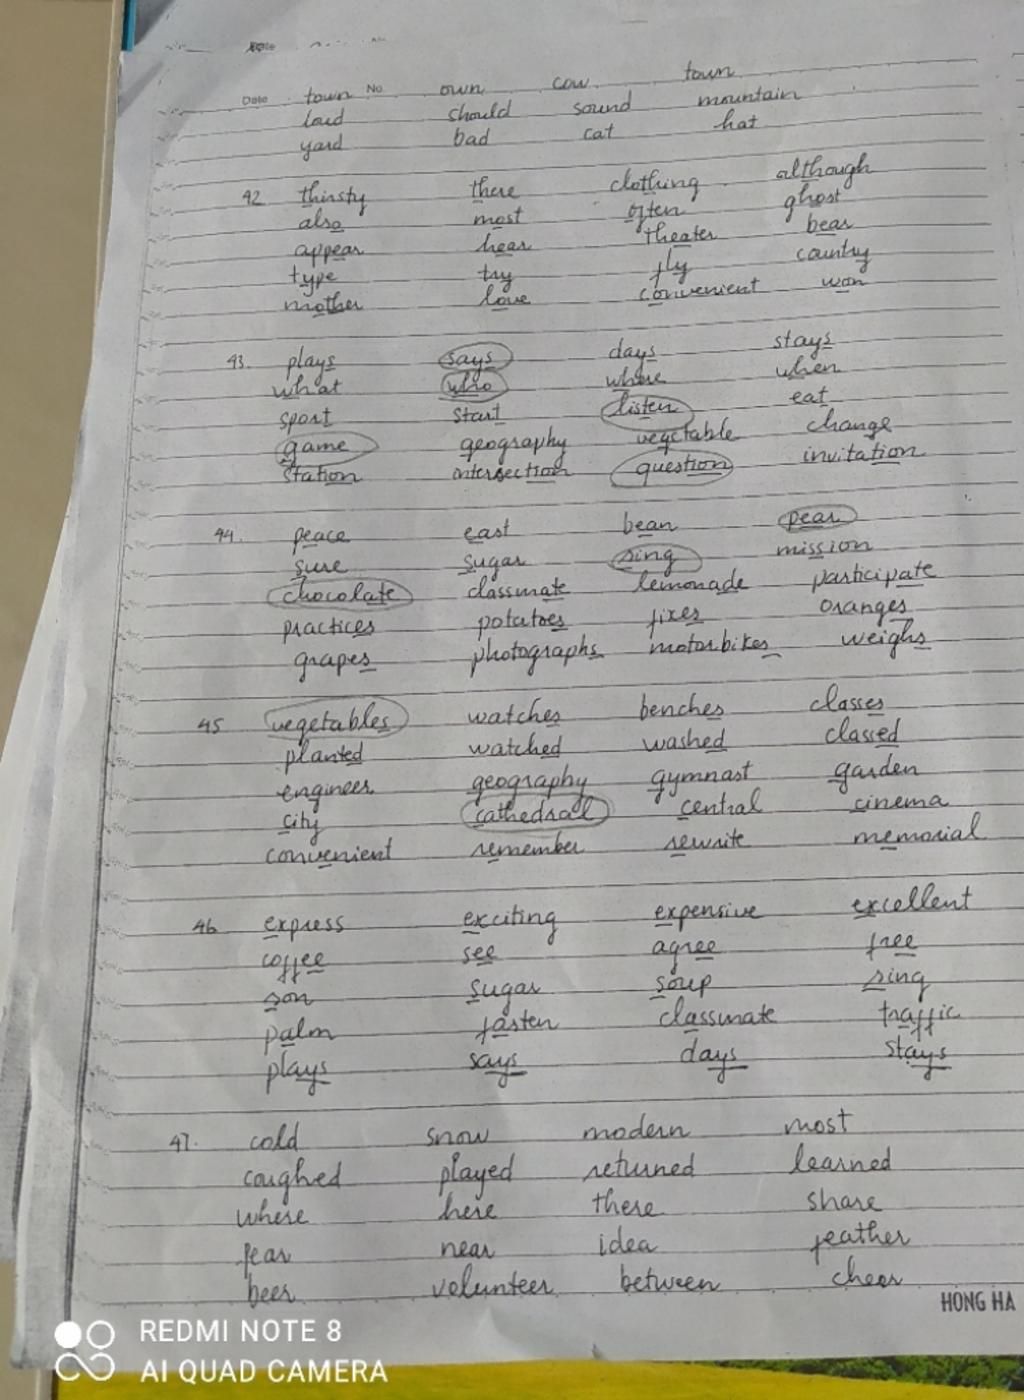 Date No.
town own cow town
loud should sound mountain
yard bad cat hat
42 thirsty there clothing although
also most often ghost
appear hear theater bear
type try fly country
mother love convenient won
43. plays says days stays
what who where when
sport start listen eat
game geography vegetable change
station intersection question invitation
44. peace east bean pear
sure sugar sing mission
chocolate classmate lemonade participate
practices potatoes fixes oranges
grapes photographs motorbikes weighs
45 vegetables watches benches classes
planted watched washed classed
engineer geography gymnast garden
city cathedral central cinema
convenient remember rewrite memorial
46 express exciting expensive excellent
coffee see agree free
son sugar soup sing
palm fasten classmate traffic
plays says days stays
47. cold snow modern most
coughed played returned learned
where here there share
fear near idea feather
beer volunteer between cheer
HONG HA
REDMI NOTE 8
AI QUAD CAMERA